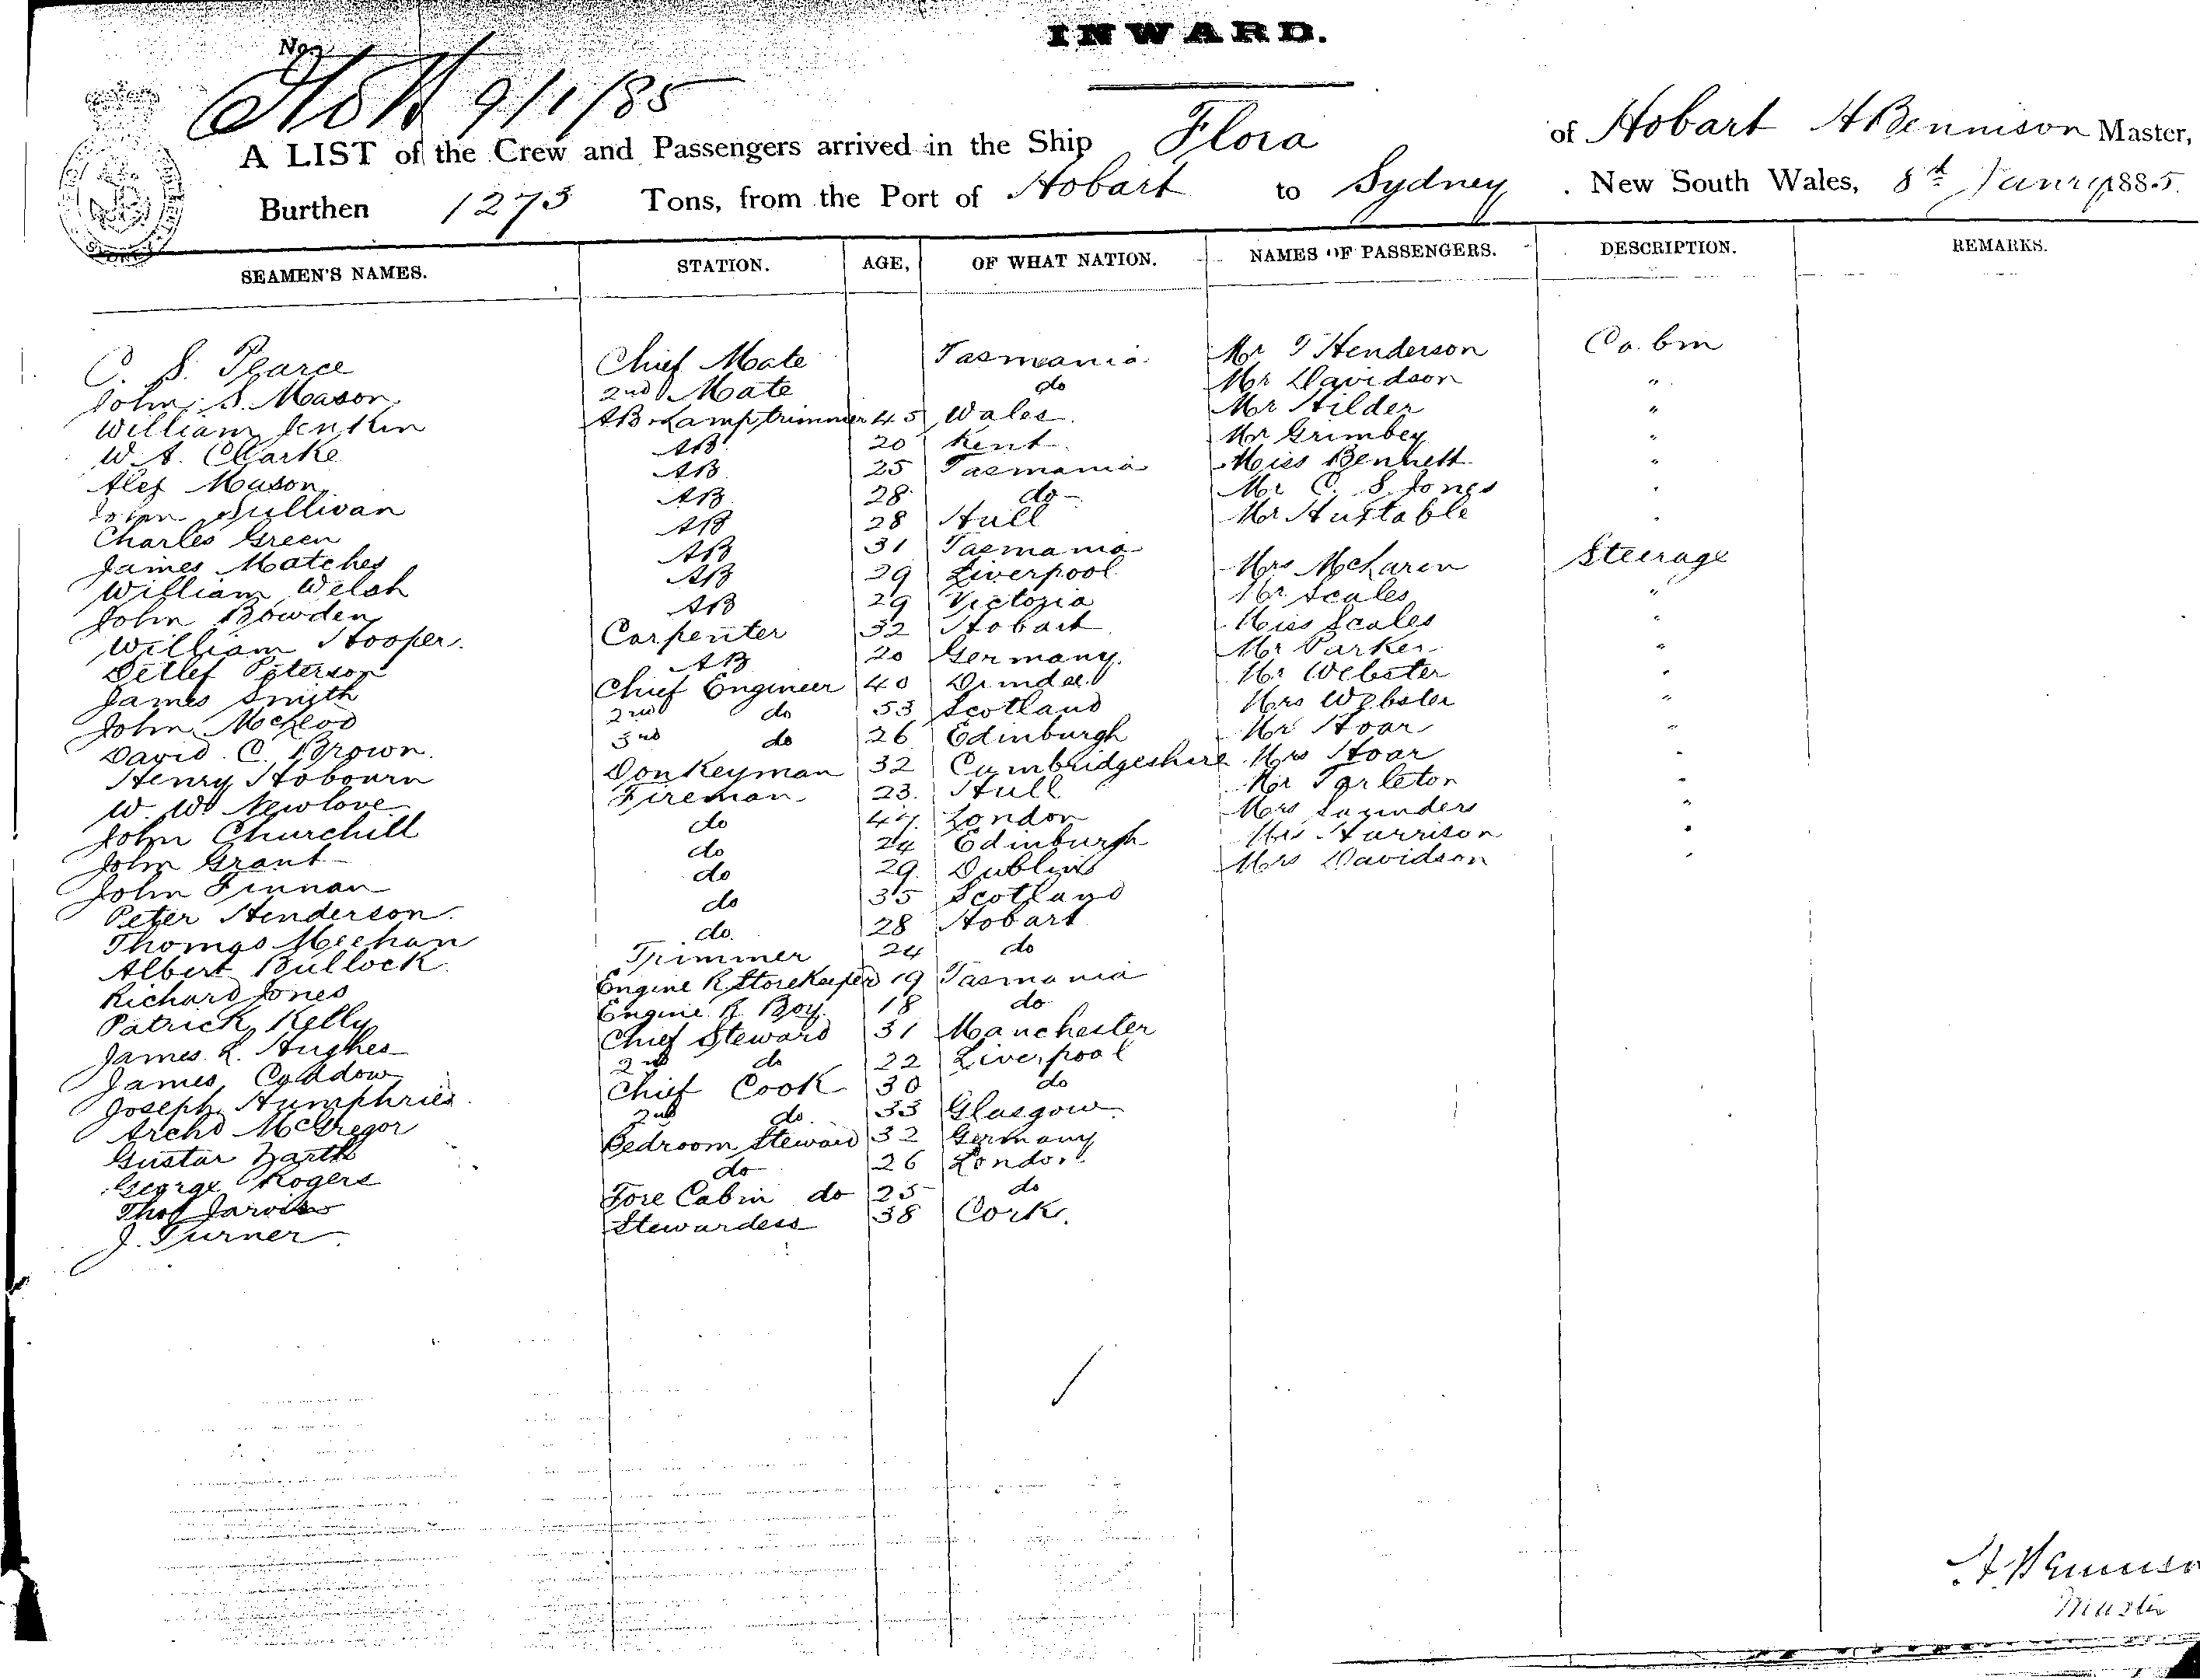 INWARD.
No.
9/1/85
A LIST of the Crew and Passengers arrived in the Ship Flora of Hobart A Bennison Master,
Burthen 1273 Tons, from the Port of Hobart to Sydney . New South Wales, 8th Janry 1885.
SEAMEN'S NAMES. STATION. AGE, OF WHAT NATION. NAMES OF PASSENGERS. DESCRIPTION. REMARKS.
C. S. Pearce Chief Mate Tasmania Mr T Henderson Cabin
John S. Mason 2nd Mate do Mr Davidson "
William Jenkin AB & Lamptrimmer 45 Wales Mr Hilder "
W. A. Clarke AB 20 Kent Mr Grimbey "
Alex Mason AB 25 Tasmania Miss Bennett "
John Sullivan AB 28 do Mr C. S. Jones "
Charles Green AB 28 Hull Mr Huxtable "
James Matches AB 31 Tasmania
William Welsh AB 29 Liverpool Mrs McLaren Steerage
John Bowden AB 29 Victoria Mr Scales "
William Hooper. Carpenter 32 Hobart Miss Scales "
Detlef Peterson AB 20 Germany. Mr Parker "
James Smith Chief Engineer 40 Dundee Mr Webster "
John McLeod 2nd do 53 Scotland Mrs Webster "
David. C. Brown. 3rd do 26 Edinburgh Mr Hoar "
Henry Hobourn Donkeyman 32 Cambridgeshire Mrs Hoar "
W. W. Newlove Fireman 23. Hull Mr Tarleton "
John Churchill do 47. London Mrs Saunders "
John Grant do 24 Edinburgh Mrs Harrison "
John Finnan do 29. Dublin Mrs Davidson "
Peter Henderson. do 35 Scotland
Thomas Meehan do. 28 Hobart
Albert Bullock Trimmer 24 do
Richard Jones Engine R Storekeeper 19 Tasmania
Patrick Kelly Engine R Boy. 18 do
James L. Hughes Chief Steward 31 Manchester
James Caddow 2nd do 22 Liverpool
Joseph Humphries. Chief Cook 30 do
Archd McGregor 2nd do. 33 Glasgow
Gustav Barth Bedroom Steward 32 Germany
George Rogers do 26 London
Thos Jarvis Fore Cabin do 25 do
J. Turner Stewardess 38 Cork.
A. Bennison
Master